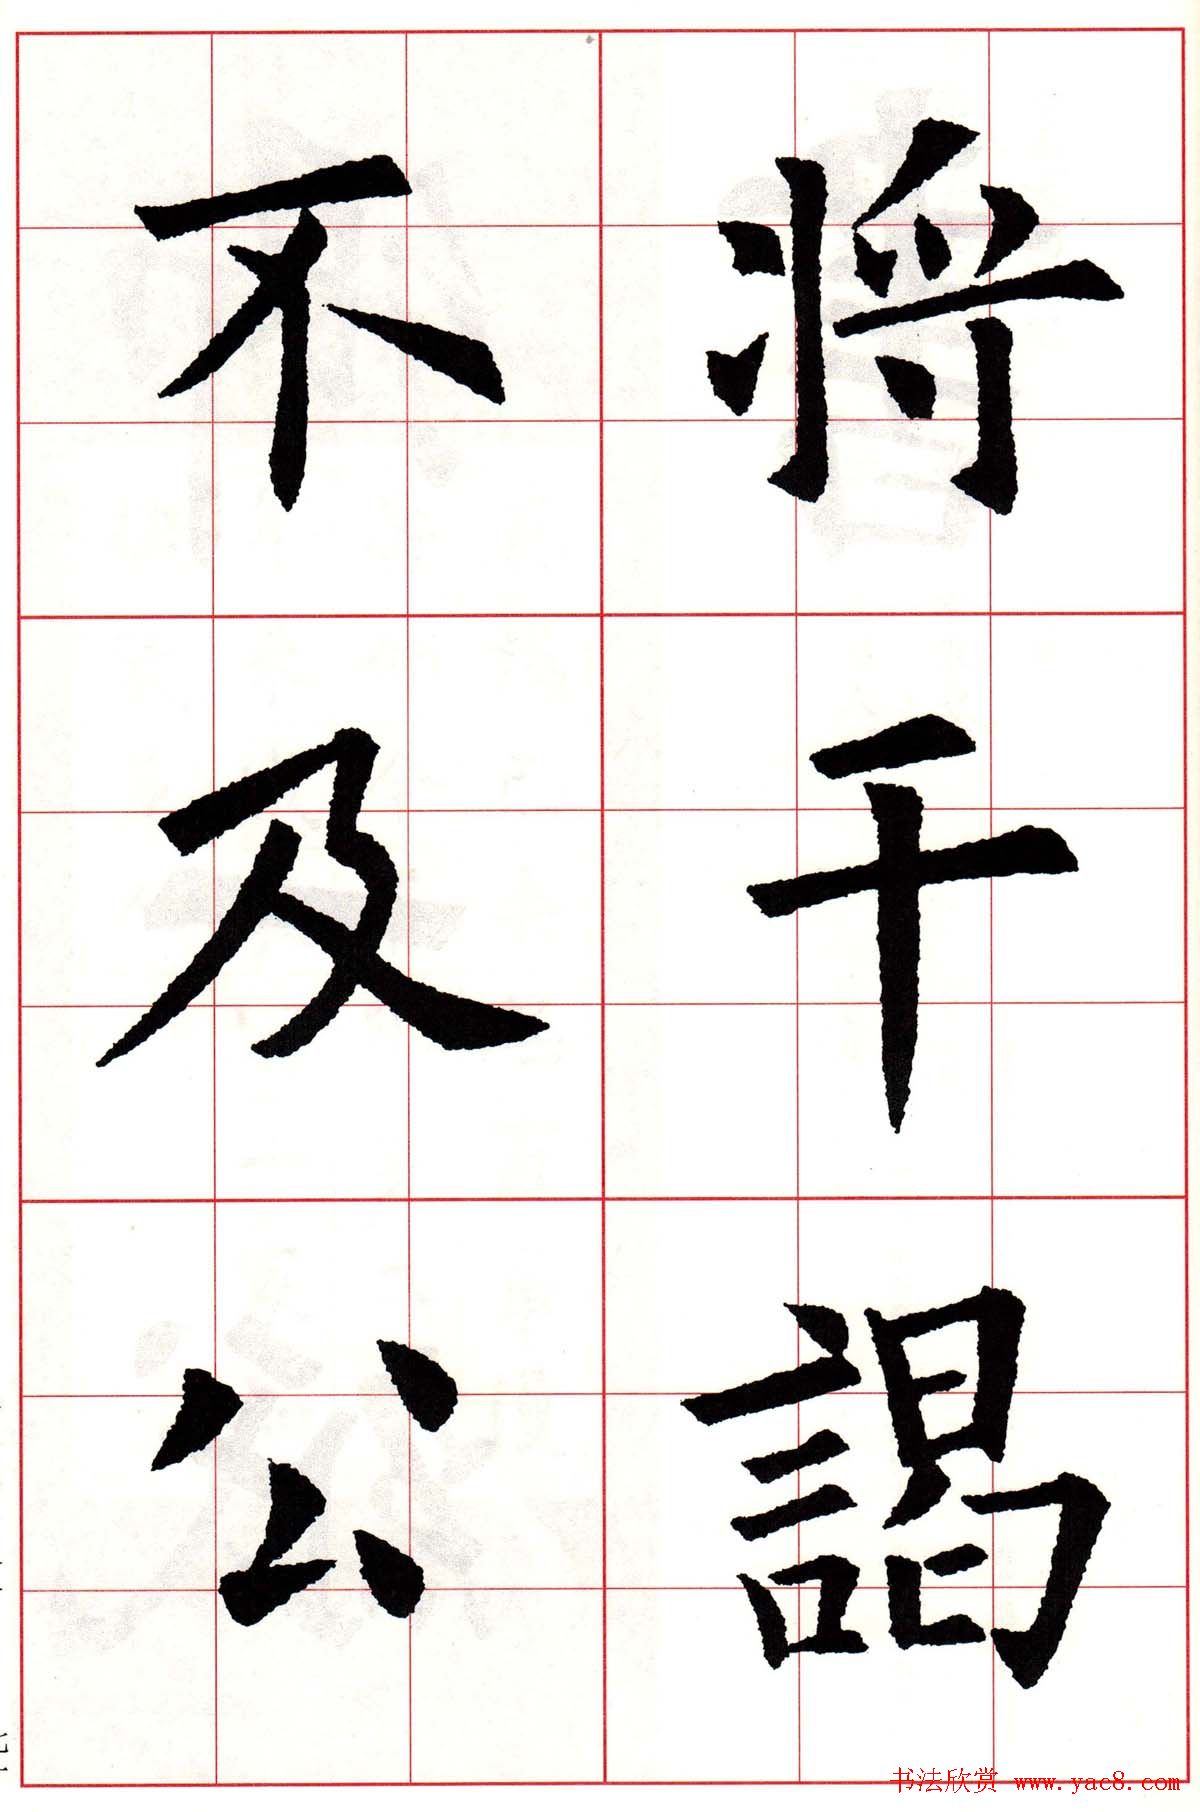 將干謁
不及公
书法欣赏 www.yac8.com